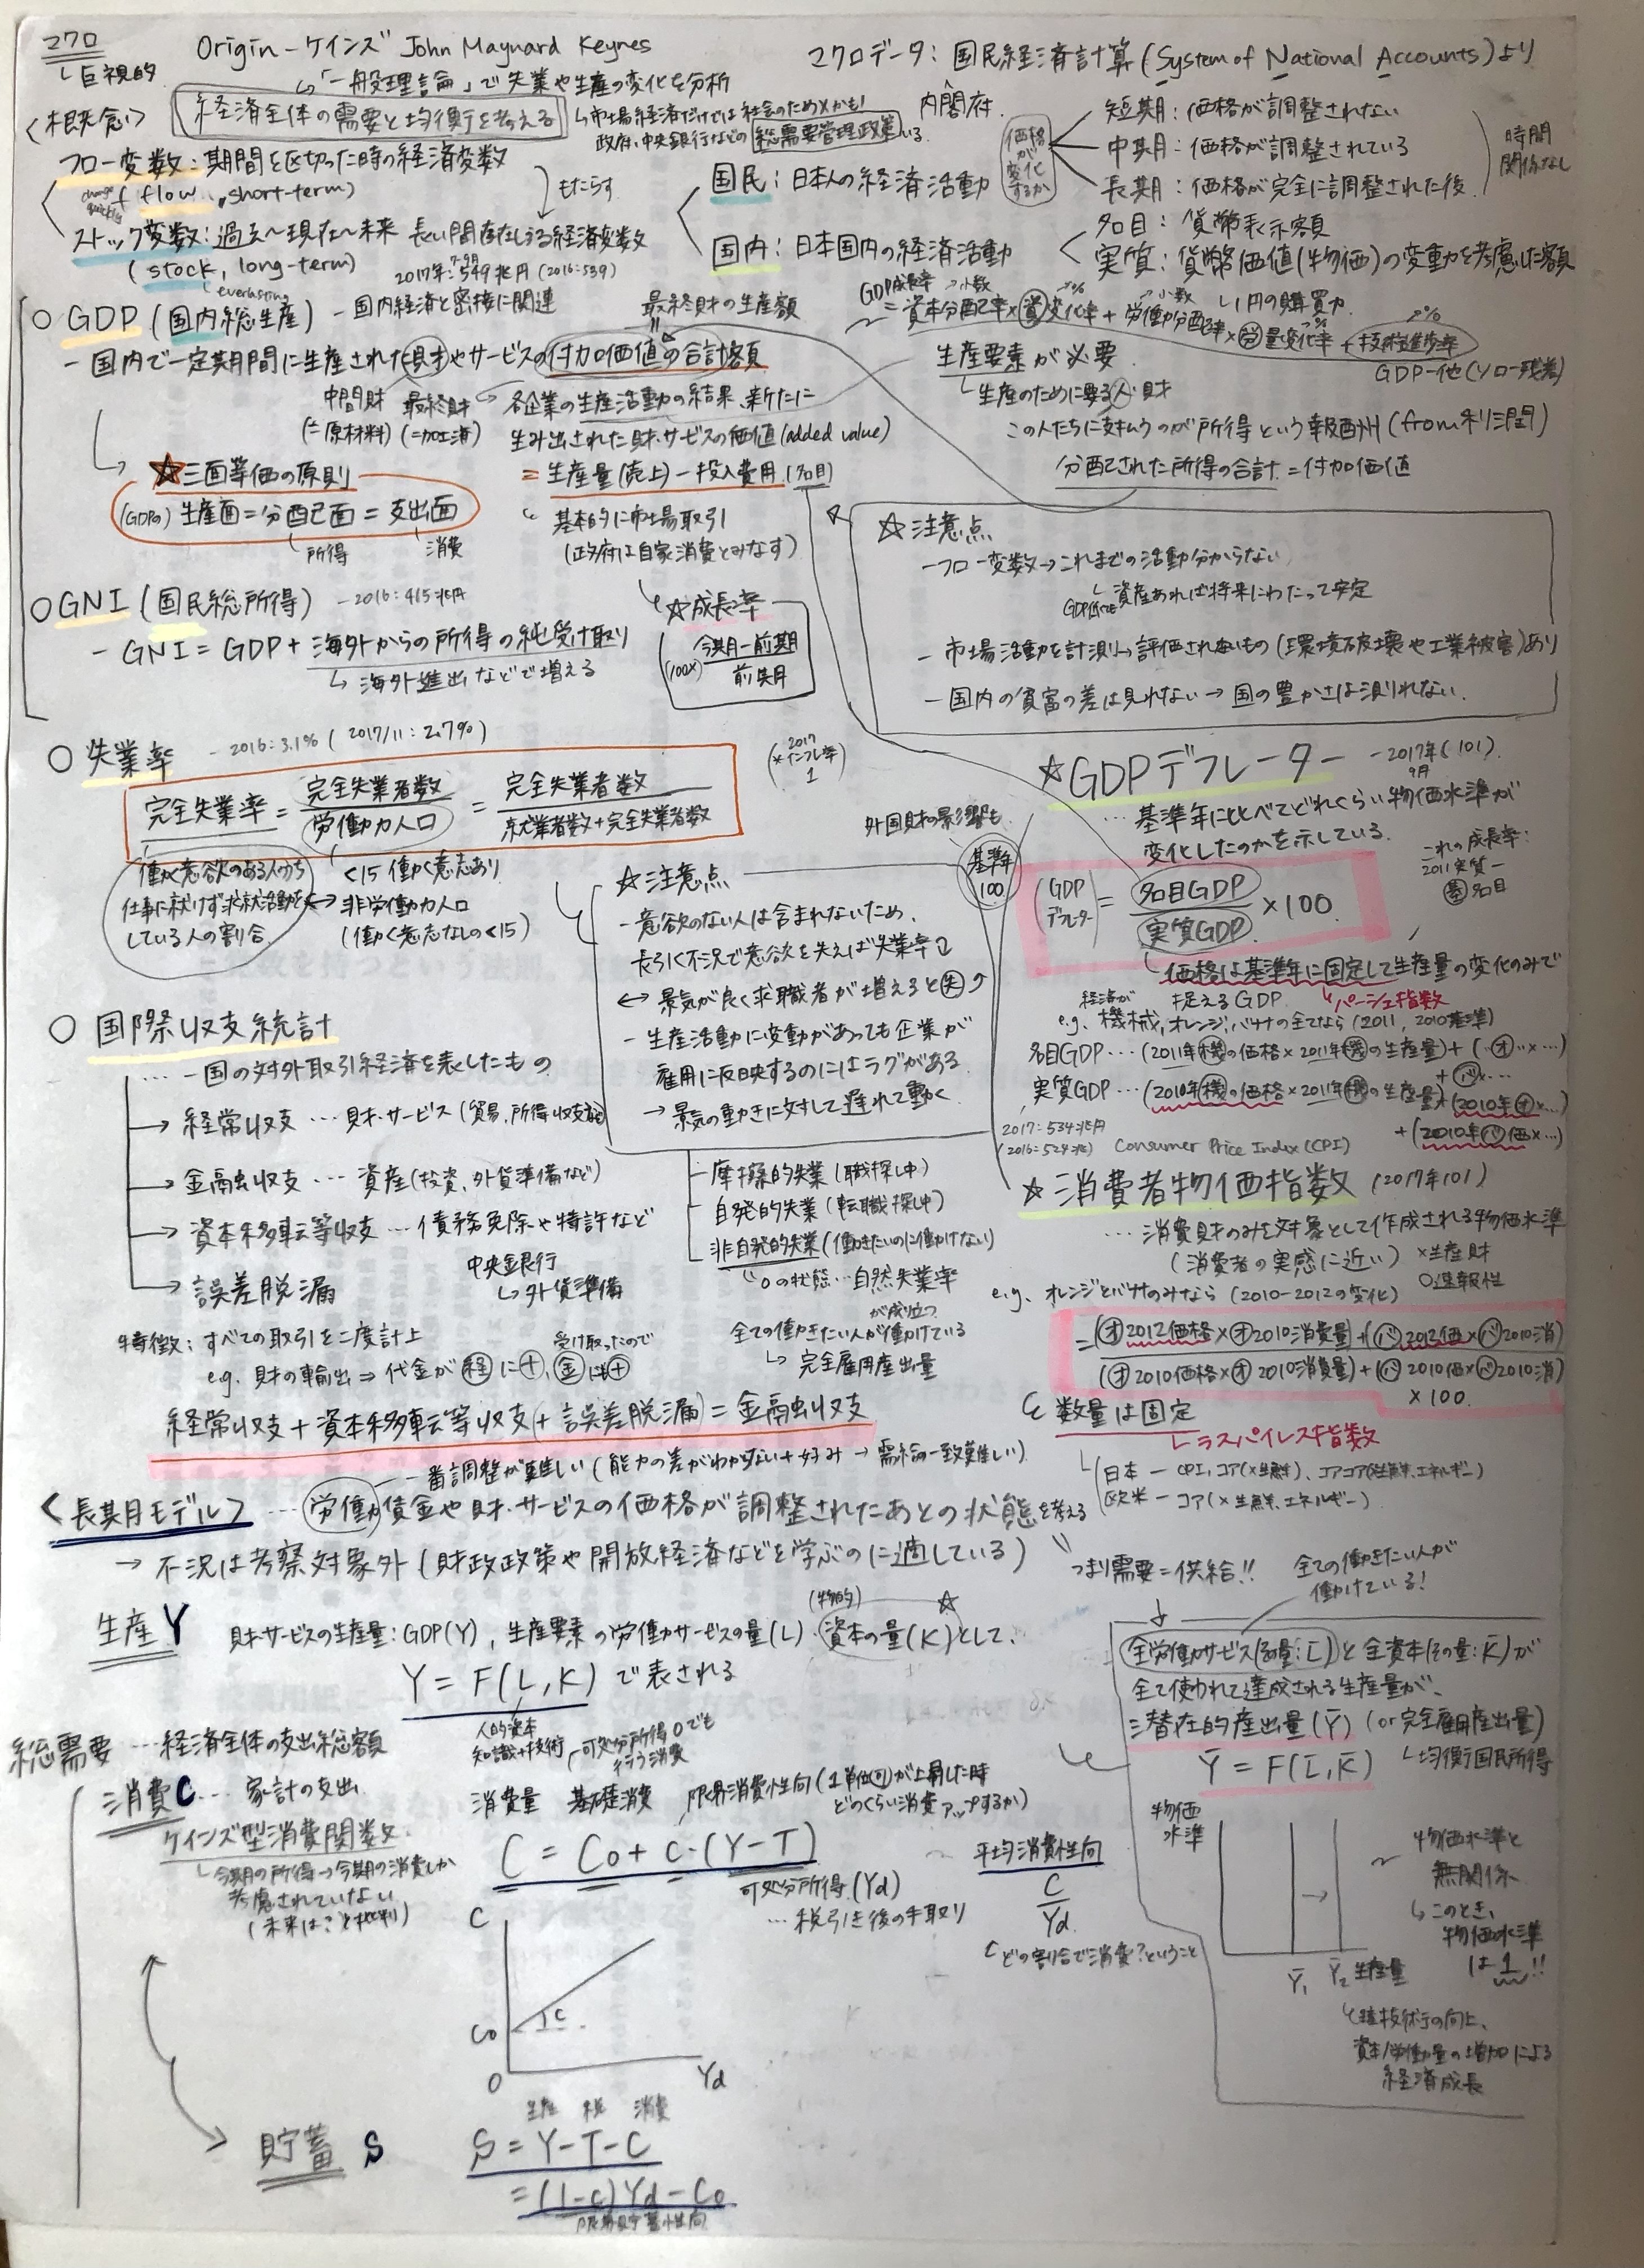 マクロ
└巨視的
Origin - ケインズ John Maynard Keynes
↳「一般理論」で失業や生産の変化を分析
<概念>
経済全体の需要と均衡を考える
↳市場経済だけでは社会のため×かも!
政府、中央銀行などの総需要管理政策いる
フロー変数:期間を区切った時の経済変数
change quickly
(flow, short-term)
もたらす
ストック変数:過去〜現在〜未来 長い間存在しうる経済変数
(stock, long-term)
└everlasting
マクロデータ:国民経済計算(System of National Accounts)より
内閣府
国民:日本人の経済活動
国内:日本国内の経済活動
価格が変化するか
短期:価格が調整されない
中期:価格が調整されている
長期:価格が完全に調整された後
時間関係なし
名目:貨幣表示額
実質:貨幣価値(物価)の変動を考慮した額
└1円の購買力
7-9月
2017年:549兆円(2016:539)
○GDP(国内総生産) - 国内経済と密接に関連
最終財の生産額
- 国内で一定期間に生産された財やサービスの付加価値の合計額
中間財 最終財
(=原材料)(=加工済)
各企業の生産活動の結果、新たに
生み出された財・サービスの価値(added value)
= 生産量(売上)-投入費用(名目)
基本的に市場取引
(政府は自家消費とみなす)
☆三面等価の原則
(GDPの)生産面=分配面=支出面
所得 消費
GDP成長率
=資本分配率×資変化率+労働分配率×労量変化率+技術進歩率
小数 % 小数 % %
GDP-他(ソロー残差)
生産要素が必要
└生産のために要る人・財
この人たちに支払うのが所得という報酬(from利潤)
分配された所得の合計=付加価値
☆注意点
- フロー変数→これまでの活動分からない
└資産あれば将来にわたって安定
GDP低くても
- 市場活動を計測↳評価されないもの(環境破壊や工業被害)あり
- 国内の貧富の差は見れない→国の豊かさは測れない.
○GNI(国民総所得) - 2016:415兆円
- GNI=GDP+海外からの所得の純受け取り
↳海外進出などで増える
☆成長率
(100×) 今期-前期
前期
○失業率 - 2016:3.1%(2017/11:2.7%)
完全失業率=完全失業者数/労働力人口=完全失業者数/就業者数+完全失業者数
2017
(*インフレ率
1)
働く意欲のある人のうち
仕事に就けず求職活動を
している人の割合.
<15 働く意志あり
↔非労働力人口
(働く意志なしの<15)
☆注意点
- 意欲のない人は含まれないため、
長引く不況で意欲を失えば失業率↓
↔景気が良く求職者が増えると失↑
- 生産活動に変動があっても企業が
雇用に反映するのにはラグがある.
→景気の動きに対して遅れて動く
摩擦的失業(職探し中)
自発的失業(転職探し中)
非自発的失業(働きたいのに働けない)
0の状態…自然失業率
が成り立つ
全ての働きたい人が働けている
↳完全雇用産出量
外国財の影響も
基準年
100
☆GDPデフレーター - 2017年(101)
9月
…基準年に比べてどれくらい物価水準が
変化したのかを示している.
これの成長率:
2011実質-
基名目
(GDPデフレーター)=名目GDP/実質GDP×100.
└価格は基準年に固定して生産量の変化のみで
捉えるGDP. ↳パーシェ指数
経済が
e.g. 機械,オレンジ,バナナの全てなら(2011, 2010基準)
名目GDP…(2011年機の価格×2011年機の生産量)+(…オ…×…)
+バ×…
実質GDP…(2010年機の価格×2011年機の生産量)+(2010年オ×…)
+(2010年バ価×…)
2017:534兆円
(2016:524兆) Consumer Price Index(CPI)
☆消費者物価指数(2017年101)
…消費財のみを対象として作成される物価水準
(消費者の実感に近い) ×生産財
○速報性
e.g. オレンジとバナナのみなら(2010-2012の変化)
=(オ2012価格×オ2010消費量)+(バ2012価×バ2010消)
(オ2010価格×オ2010消費量)+(バ2010価×バ2010消)
×100
数量は固定
└ラスパイレス指数
日本 - CPI,コア(×生鮮)、コアコア(生鮮エネルギー)
欧米 - コア(×生鮮エネルギー)
○国際収支統計
…一国の対外取引経済を表したもの
→経常収支…財・サービス(貿易,所得収支など)
→金融収支…資産(投資、外貨準備など)
→資本移転等収支…債務免除や特許など
→誤差脱漏
中央銀行
↳外貨準備
特徴:すべての取引を二度計上
受け取ったので
e.g. 財の輸出⇒代金が経に+,金は+
経常収支+資本移転等収支(+誤差脱漏)=金融収支
一番調整が難しい(能力の差がわからない+好み→需給一致難しい)
<長期モデル>…労働賃金や財・サービスの価格が調整されたあとの状態を考える
→不況は考察対象外(財政政策や開放経済などを学ぶのに適している)
つまり需要=供給!!
全ての働きたい人が
働けている!
生産Y 財・サービスの生産量:GDP(Y), 生産要素の労働サービスの量(L)・資本の量(K)として、
(物的)
Y=F(L,K)で表される
人的資本
知識+技術
全労働サービス(その量:L̄)と全資本(その量:K̄)が
全て使われて達成される生産量が、
潜在的産出量(Ȳ)(or完全雇用産出量)
Ȳ=F(L̄,K̄) └均衡国民所得
物価
水準
Ȳ₁ Ȳ₂ 生産量
物価水準と
無関係
↳このとき、
物価水準
は1!!
技術の向上、
資本/労働量の増加による
経済成長
総需要…経済全体の支出総額
消費C…家計の支出
ケインズ型消費関数
└今期の所得→今期の消費しか
考慮されていない
(未来は?と批判)
可処分所得0でも
行う消費
消費量 基礎消費 限界消費性向(1単位可が上昇した時
どのくらい消費アップするか)
C=C₀+c・(Y-T)
可処分所得(Yd)
…税引き後の手取り
平均消費性向
C
Yd
どの割合で消費?ということ
C
C₀
c
0
Yd
生産 税 消費
貯蓄S S=Y-T-C
=(1-c)Yd-C₀
限界貯蓄性向